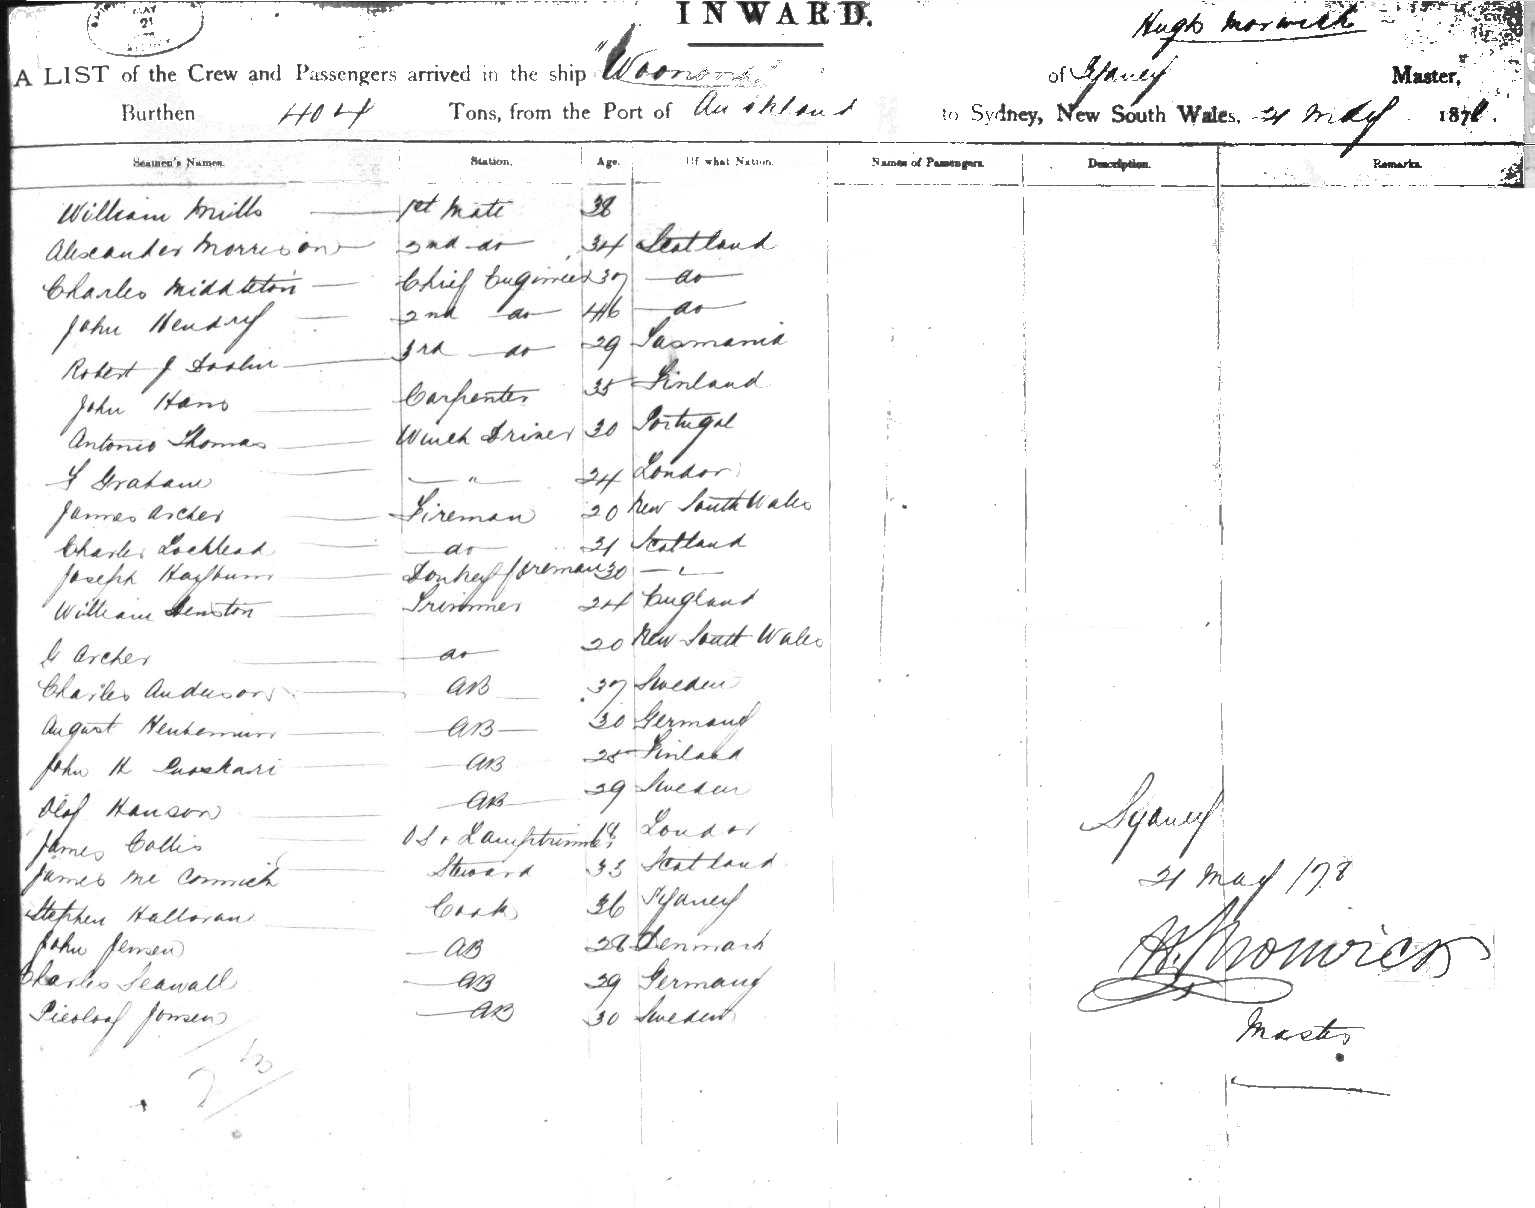 MAY
21
INWARD.
Hugh Morwick
A LIST of the Crew and Passengers arrived in the ship "Woonona" of Sydney Master,
Burthen 404 Tons, from the Port of Auckland to Sydney, New South Wales, 21 May 1878.
Seamen's Names. Station. Age. Of what Nation. Names of Passengers. Description. Remarks.
William Mills 1st Mate 38
Alexander Morrison 2nd do 34 Scotland
Charles Middleton Chief Engineer 37 do
John Hendry 2nd do 46 do
Robert J 3rd do 29 Tasmania
John Hans Carpenter 35 Finland
Antonio Thomas Winch Driver 30 Portugal
F Graham " 24 London
James Archer Fireman 20 New South Wales
Charles Lochhead do 21 Scotland
Joseph Hayburn Donkey foreman 30 "
William Denston Trimmer 24 England
G Archer do 20 New South Wales
Charles Anderson AB 37 Sweden
August AB 30 Germany
John H AB 25 Finland
Olof Hanson AB 29 Sweden
James Collis OS & Lamptrimmer 18 London
James McCormick Steward 33 Scotland
Stephen Halloran Cook 36 Sydney
John Jensen AB 28 Denmark
Charles Seawall AB 29 Germany
Jonsen AB 30 Sweden
23
Sydney
21 May /78
H. Morwick
Master